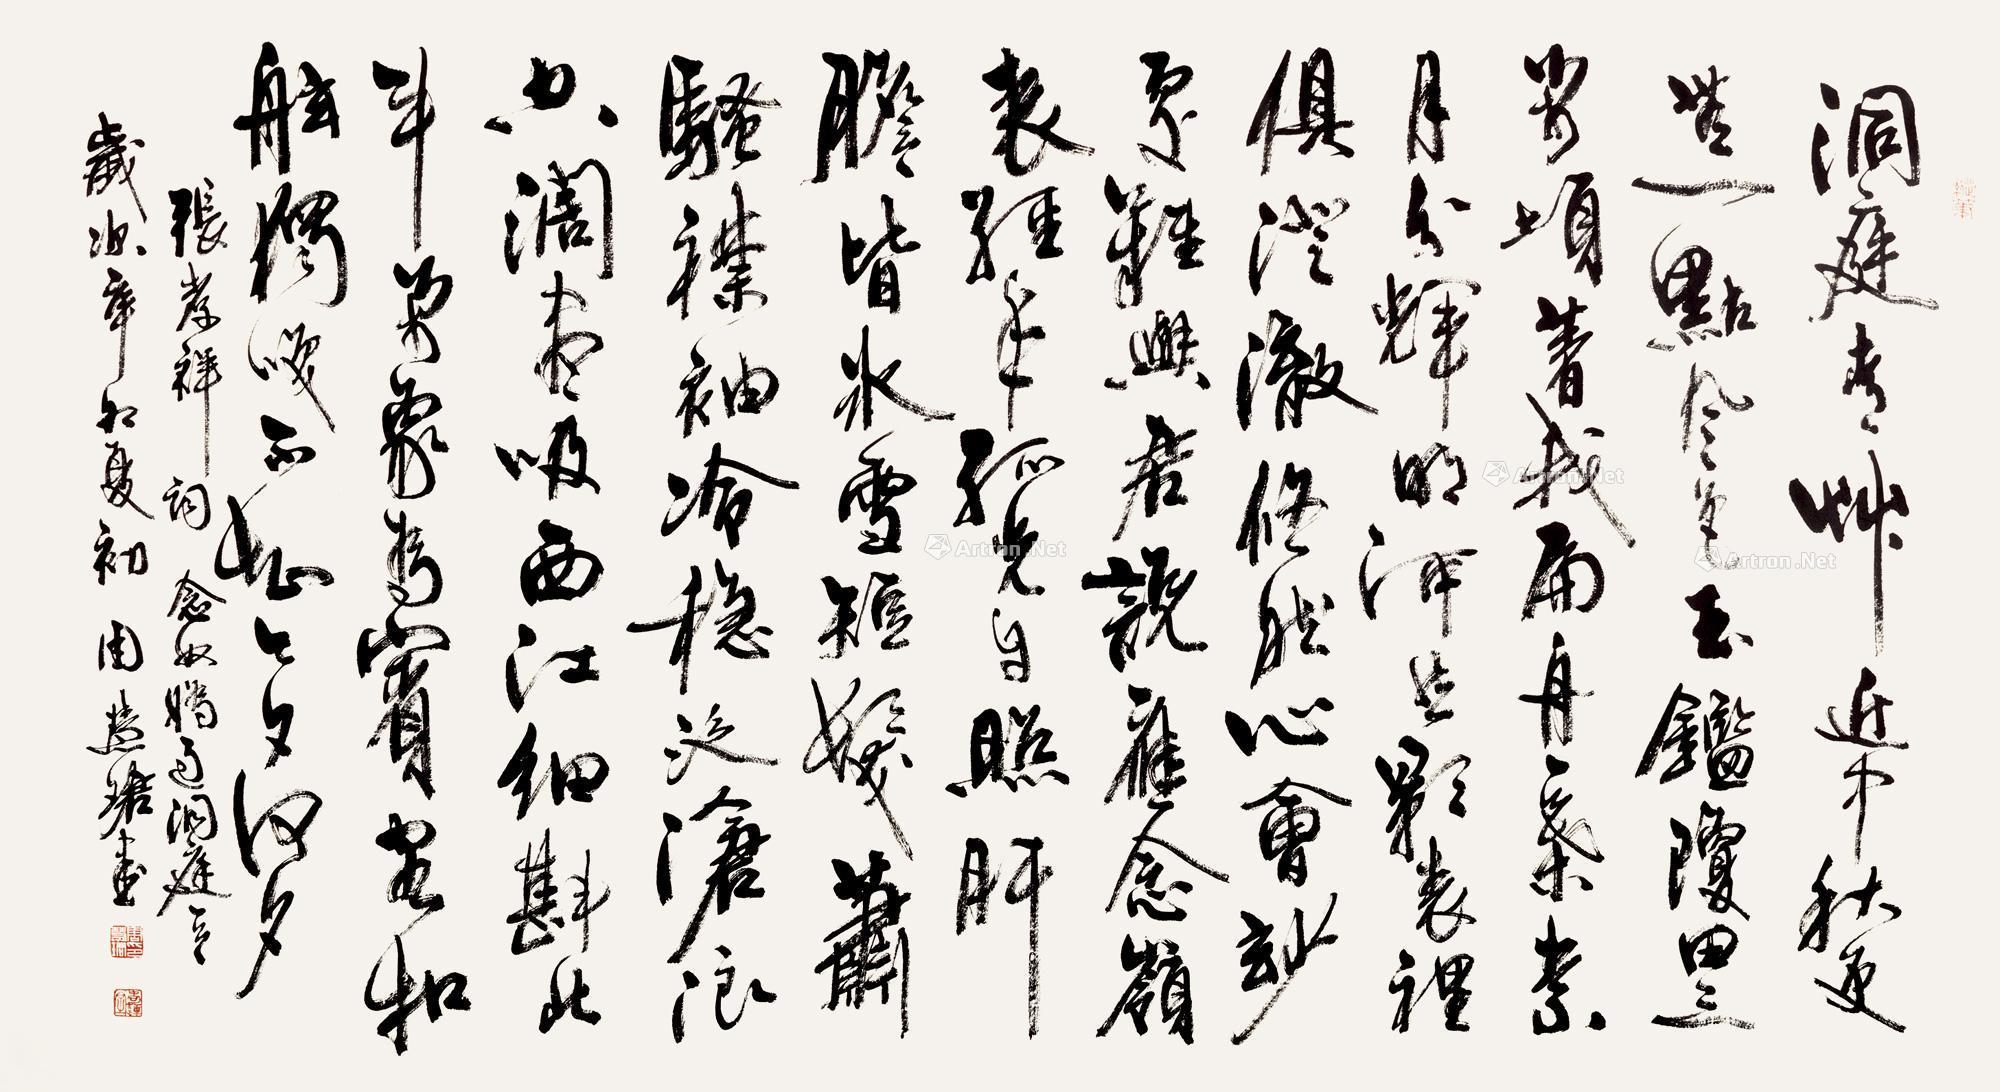 洞庭青艸近中秋更
無一點風色玉鑑瓊田三
萬頃著我扁舟一葉素
月分輝明河共影表裡
俱澄澈悠然心會妙
處難與君說應念嶺
表經年孤光自照肝
膽皆冰雪短髮蕭
騷襟袖冷穩泛滄浪
空闊盡吸西江細斟北
斗萬象為賓客扣
舷獨咲不知今夕何夕
張孝祥詞 念奴嬌過洞庭
歲次辛卯夏初 周慧珺書
Artron.Net
Artron.Net
Artron.Net